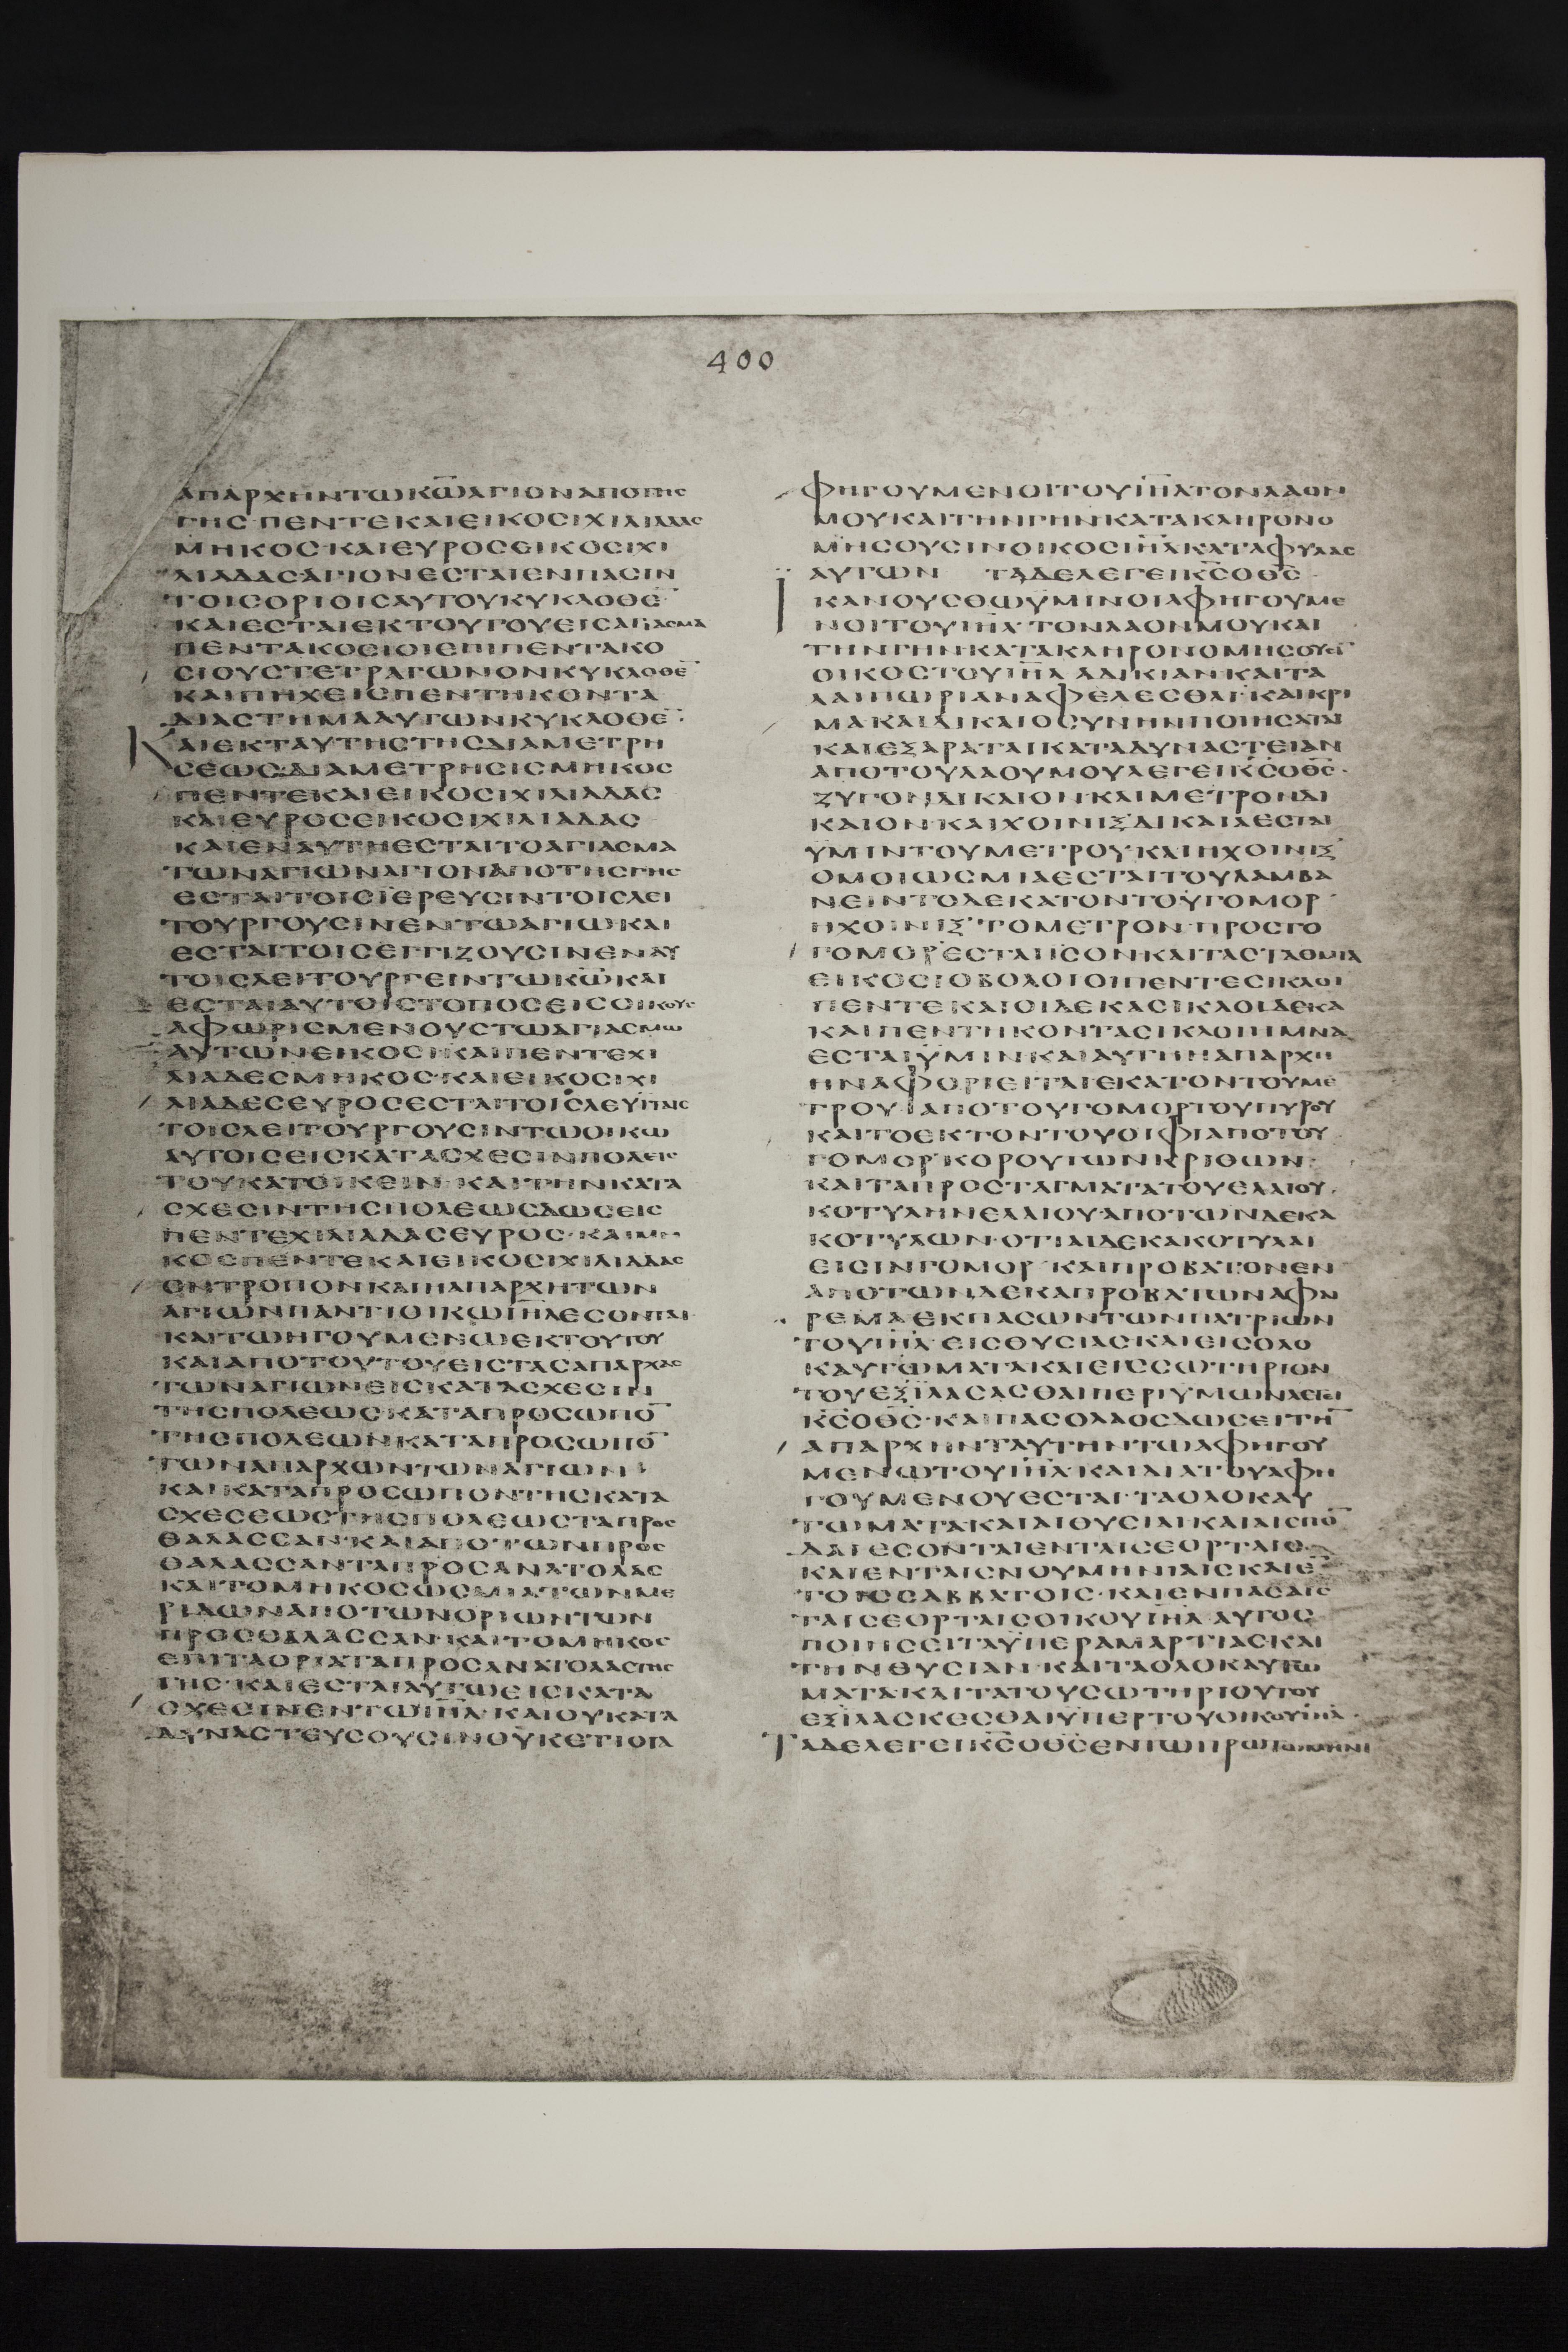 400
ΑΠΑΡΧΗΝΤΩΚ̅Ω̅ΑΓΙΟΝΑΠΟΤΗΣ
ΓΗΣ·ΠΕΝΤΕΚΑΙΕΙΚΟΣΙΧΙΛΙΑΔΑΣ
ΜΗΚΟΣ·ΚΑΙΕΥΡΟΣΕΙΚΟΣΙΧΙ
ΛΙΑΔΑΣ·ΑΓΙΟΝΕΣΤΑΙΕΝΠΑΣΙΝ
ΤΟΙΣΟΡΙΟΙΣΑΥΤΟΥΚΥΚΛΟΘΕ̅
ΚΑΙΕΣΤΑΙΕΚΤΟΥΤΟΥΕΙΣΑΓΙΑΣΜΑ
ΠΕΝΤΑΚΟΣΙΟΙΕΠΙΠΕΝΤΑΚΟ
ΣΙΟΥΣΤΕΤΡΑΓΩΝΟΝΚΥΚΛΟΘΕ̅
ΚΑΙΠΗΧΕΙΣΠΕΝΤΗΚΟΝΤΑ
ΔΙΑΣΤΗΜΑΑΥΤΩΝΚΥΚΛΟΘΕ̅:
ΚΑΙΕΚΤΑΥΤΗΣΤΗΣΔΙΑΜΕΤΡΗ
ΣΕΩΣΔΙΑΜΕΤΡΗΣΙΣΜΗΚΟΣ
ΠΕΝΤΕΚΑΙΕΙΚΟΣΙΧΙΛΙΑΔΑΣ
ΚΑΙΕΥΡΟΣΕΙΚΟΣΙΧΙΛΙΑΔΑΣ
ΚΑΙΕΝΑΥΤΗΕΣΤΑΙΤΟΑΓΙΑΣΜΑ
ΤΩΝΑΓΙΩΝΑΓΙΟΝΑΠΟΤΗΣΓΗΣ
ΕΣΤΑΙΤΟΙΣΪΕΡΕΥΣΙΝΤΟΙΣΛΕΙ
ΤΟΥΡΓΟΥΣΙΝΕΝΤΩΑΓΙΩΚΑΙ
ΕΣΤΑΙΤΟΙΣΕΓΓΙΖΟΥΣΙΝΕΝΑΥ
ΤΟΙΣΛΕΙΤΟΥΡΓΕΙΝΤΩΚ̅Ω̅ΚΑΙ
ΕΣΤΑΙΑΥΤΟΙΣΤΟΠΟΣΕΙΣΟΙΚΟΥΣ
ΑΦΩΡΙΣΜΕΝΟΥΣΤΩΑΓΙΑΣΜΩ
ΑΥΤΩΝΕΙΚΟΣΙΚΑΙΠΕΝΤΕΧΙ
ΛΙΑΔΕΣΜΗΚΟΣ·ΚΑΙΕΙΚΟΣΙΧΙ
ΛΙΑΔΕΣΕΥΡΟΣΕΣΤΑΙΤΟΙΣΛΕΥΙΤΑΙΣ
ΤΟΙΣΛΕΙΤΟΥΡΓΟΥΣΙΝΤΩΟΙΚΩ
ΑΥΤΟΙΣΕΙΣΚΑΤΑΣΧΕΣΙΝΠΟΛΕΙΣ
ΤΟΥΚΑΤΟΙΚΕΙΝ·ΚΑΙΤΗΝΚΑΤΑ
ΣΧΕΣΙΝΤΗΣΠΟΛΕΩΣΔΩΣΕΙΣ
ΠΕΝΤΕΧΙΛΙΑΔΑΣΕΥΡΟΣ·ΚΑΙΜΗ
ΚΟΣΠΕΝΤΕΚΑΙΕΙΚΟΣΙΧΙΛΙΑΔΑΣ
ΟΝΤΡΟΠΟΝΚΑΙΗΑΠΑΡΧΗΤΩΝ
ΑΓΙΩΝΠΑΝΤΙΟΙΚΩΙ̅Η̅Λ̅ΕΣΟΝΤΑΙ·
ΚΑΙΤΩΗΓΟΥΜΕΝΩΕΚΤΟΥΤΟΥ
ΚΑΙΑΠΟΤΟΥΤΟΥΕΙΣΤΑΣΑΠΑΡΧΑΣ
ΤΩΝΑΓΙΩΝΕΙΣΚΑΤΑΣΧΕΣΙΝ
ΤΗΣΠΟΛΕΩΣ·ΚΑΤΑΠΡΟΣΩΠΟ̅
ΤΗΣΠΟΛΕΩΝΚΑΤΑΠΡΟΣΩΠΟ̅
ΤΩΝΑΠΑΡΧΩΝΤΩΝΑΓΙΩΝ
ΚΑΙΚΑΤΑΠΡΟΣΩΠΟΝΤΗΣΚΑΤΑ
ΣΧΕΣΕΩΣΤΗΣΠΟΛΕΩΣΤΑΠΡΟΣ
ΘΑΛΑΣΣΑΝ·ΚΑΙΑΠΟΤΩΝΠΡΟΣ
ΘΑΛΑΣΣΑΝΤΑΠΡΟΣΑΝΑΤΟΛΑΣ
ΚΑΙΤΟΜΗΚΟΣΩΣΜΙΑΤΩΝΜΕ
ΡΙΔΩΝΑΠΟΤΩΝΟΡΙΩΝΤΩΝ
ΠΡΟΣΘΑΛΑΣΣΑΝ·ΚΑΙΤΟΜΗΚΟΣ
ΕΠΙΤΑΟΡΙΑΤΑΠΡΟΣΑΝΑΤΟΛΑΣΤΗΣ
ΓΗΣ·ΚΑΙΕΣΤΑΙΑΥΤΩΕΙΣΚΑΤΑ
ΣΧΕΣΙΝΕΝΤΩΙ̅Η̅Λ̅·ΚΑΙΟΥΚΑΤΑ
ΔΥΝΑΣΤΕΥΣΟΥΣΙΝΟΥΚΕΤΙΟΙΑ
ΦΗΓΟΥΜΕΝΟΙΤΟΥΙ̅Η̅Λ̅ΤΟΝΛΑΟΝ
ΜΟΥΚΑΙΤΗΝΓΗΝΚΑΤΑΚΛΗΡΟΝΟ
ΜΗΣΟΥΣΙΝΟΙΚΟΣΙ̅Η̅Λ̅ΚΑΤΑΦΥΛΑΣ
ΑΥΤΩΝ ΤΑΔΕΛΕΓΕΙΚ̅Σ̅ΟΘ̅Σ̅·
ΙΚΑΝΟΥΣΘΩΫΜΙΝΟΙΑΦΗΓΟΥΜΕ
ΝΟΙΤΟΥΙ̅Η̅Λ̅·ΤΟΝΛΑΟΝΜΟΥΚΑΙ
ΤΗΝΓΗΝΚΑΤΑΚΛΗΡΟΝΟΜΗΣΟΥΣΙ̅
ΟΙΚΟΣΤΟΥΙ̅Η̅Λ̅ΑΔΙΚΙΑΝΚΑΙΤΑ
ΛΑΙΠΩΡΙΑΝΑΦΕΛΕΣΘΑΙ·ΚΑΙΚΡΙ
ΜΑΚΑΙΔΙΚΑΙΟΣΥΝΗΝΠΟΙΗΣΑΤΑΙ
ΚΑΙΕΞΑΡΑΤΑΙΚΑΤΑΔΥΝΑΣΤΕΙΑΝ
ΑΠΟΤΟΥΛΑΟΥΜΟΥΛΕΓΕΙΚ̅Σ̅ΟΘ̅Σ̅·
ΖΥΓΟΝΔΙΚΑΙΟΝΚΑΙΜΕΤΡΟΝΔΙ
ΚΑΙΟΝ·ΚΑΙΧΟΙΝΙΞΔΙΚΑΙΑΕΣΤΑΙ
ΫΜΙΝΤΟΥΜΕΤΡΟΥ·ΚΑΙΗΧΟΙΝΙΞ
ΟΜΟΙΩΣΜΙΑΕΣΤΑΙΤΟΥΛΑΜΒΑ
ΝΕΙΝΤΟΔΕΚΑΤΟΝΤΟΥΓΟΜΟΡ
ΗΧΟΙΝΙΞ·ΤΟΜΕΤΡΟΝΠΡΟΣΤΟ
ΓΟΜΟΡΕΣΤΑΙΙΣΟΝ·ΚΑΙΤΑΣΤΑΘΜΙΑ
ΕΙΚΟΣΙΟΒΟΛΟΙΟΙΠΕΝΤΕΣΙΚΛΟΙ
ΠΕΝΤΕΚΑΙΟΙΔΕΚΑΣΙΚΛΟΙΔΕΚΑ
ΚΑΙΠΕΝΤΗΚΟΝΤΑΣΙΚΛΟΙΗΜΝΑ
ΕΣΤΑΙΫΜΙΝ·ΚΑΙΑΥΤΗΗΑΠΑΡΧΗ
ΗΝΑΦΟΡΙΕΙΤΑΙΕΚΑΤΟΝΤΟΥΜΕ
ΤΡΟΥΑΠΟΤΟΥΓΟΜΟΡΤΟΥΠΥΡΟΥ
ΚΑΙΤΟΕΚΤΟΝΤΟΥΟΙΦΙΑΠΟΤΟΥ
ΓΟΜΟΡ·ΚΟΡΟΥΤΩΝΚΡΙΘΩΝ·
ΚΑΙΤΑΠΡΟΣΤΑΓΜΑΤΑΤΟΥΕΛΑΙΟΥ·
ΚΟΤΥΛΗΝΕΛΑΙΟΥΑΠΟΤΩΝΔΕΚΑ
ΚΟΤΥΛΩΝ·ΟΤΙΑΙΔΕΚΑΚΟΤΥΛΑΙ
ΕΙΣΙΝΓΟΜΟΡ·ΚΑΙΠΡΟΒΑΤΟΝΕΝ
ΑΠΟΤΩΝΔΕΚΑΠΡΟΒΑΤΩΝΑΦΑΙ
ΡΕΜΑΕΚΠΑΣΩΝΤΩΝΠΑΤΡΙΩΝ
ΤΟΥΙ̅Η̅Λ̅·ΕΙΣΘΥΣΙΑΣΚΑΙΕΙΣΟΛΟ
ΚΑΥΤΩΜΑΤΑΚΑΙΕΙΣΣΩΤΗΡΙΟΝ
ΤΟΥΕΞΙΛΑΣΑΣΘΑΙΠΕΡΙΥΜΩΝΛΕΓΕΙ
Κ̅Σ̅ΟΘ̅Σ̅·ΚΑΙΠΑΣΟΛΑΟΣΔΩΣΕΙΤΗ̅
ΑΠΑΡΧΗΝΤΑΥΤΗΝΤΩΑΦΗΓΟΥ
ΜΕΝΩΤΟΥΙ̅Η̅Λ̅·ΚΑΙΔΙΑΤΟΥΑΦΗ
ΓΟΥΜΕΝΟΥΕΣΤΑΙ·ΤΑΟΛΟΚΑΥ
ΤΩΜΑΤΑΚΑΙΑΙΘΥΣΙΑΙΚΑΙΑΙΣΠΟ̅
ΔΑΙΕΣΟΝΤΑΙΕΝΤΑΙΣΕΟΡΤΑΙΣ
ΚΑΙΕΝΤΑΙΣΝΟΥΜΗΝΙΑΙΣΚΑΙΕ̅
ΤΟΙΣΣΑΒΒΑΤΟΙΣ·ΚΑΙΕΝΠΑΣΑΙΣ
ΤΑΙΣΕΟΡΤΑΙΣΟΙΚΟΥΙ̅Η̅Λ̅ΑΥΤΟΣ
ΠΟΙΗΣΕΙΤΑΫΠΕΡΑΜΑΡΤΙΑΣΚΑΙ
ΤΗΝΘΥΣΙΑΝ·ΚΑΙΤΑΟΛΟΚΑΥΤΩ
ΜΑΤΑΚΑΙΤΑΤΟΥΣΩΤΗΡΙΟΥΤΟΥ
ΕΞΙΛΑΣΚΕΣΘΑΙΫΠΕΡΤΟΥΟΙΚΟΥΙ̅Η̅Λ̅·
ΤΑΔΕΛΕΓΕΙΚ̅Σ̅ΟΘ̅Σ̅ΕΝΤΩΠΡΩΤΩΜΗΝΙ